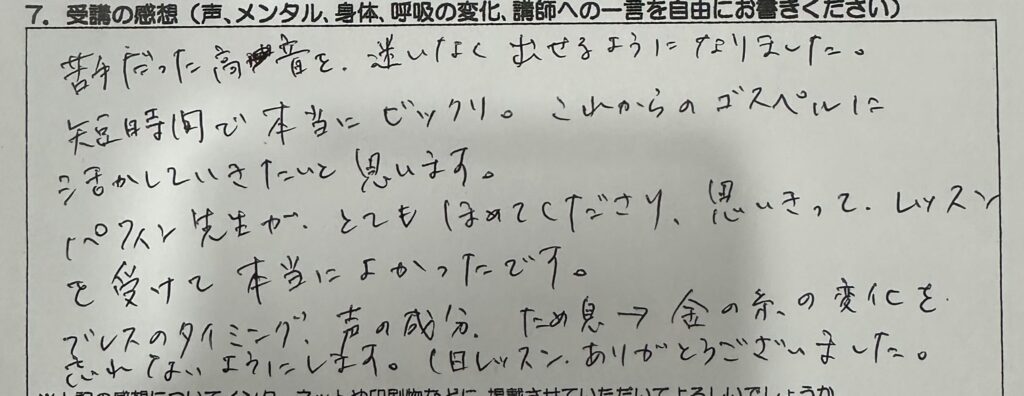 7. 受講の感想（声、メンタル、身体、呼吸の変化、講師への一言を自由にお書きください）
苦手だった高音を、迷いなく出せるようになりました。
短時間で本当にビックリ。これからのゴスペルに
活かしていきたいと思います。
先生が、とてもほめてくださり、思いきって、レッスン
を受けて本当によかったです。
ブレスのタイミング、声の成分、ため息→金の糸の変化を
忘れないようにします。1日レッスン、ありがとうございました。
※上記の感想についてインターネットや印刷物などに、掲載させていただいてよろしいでしょうか